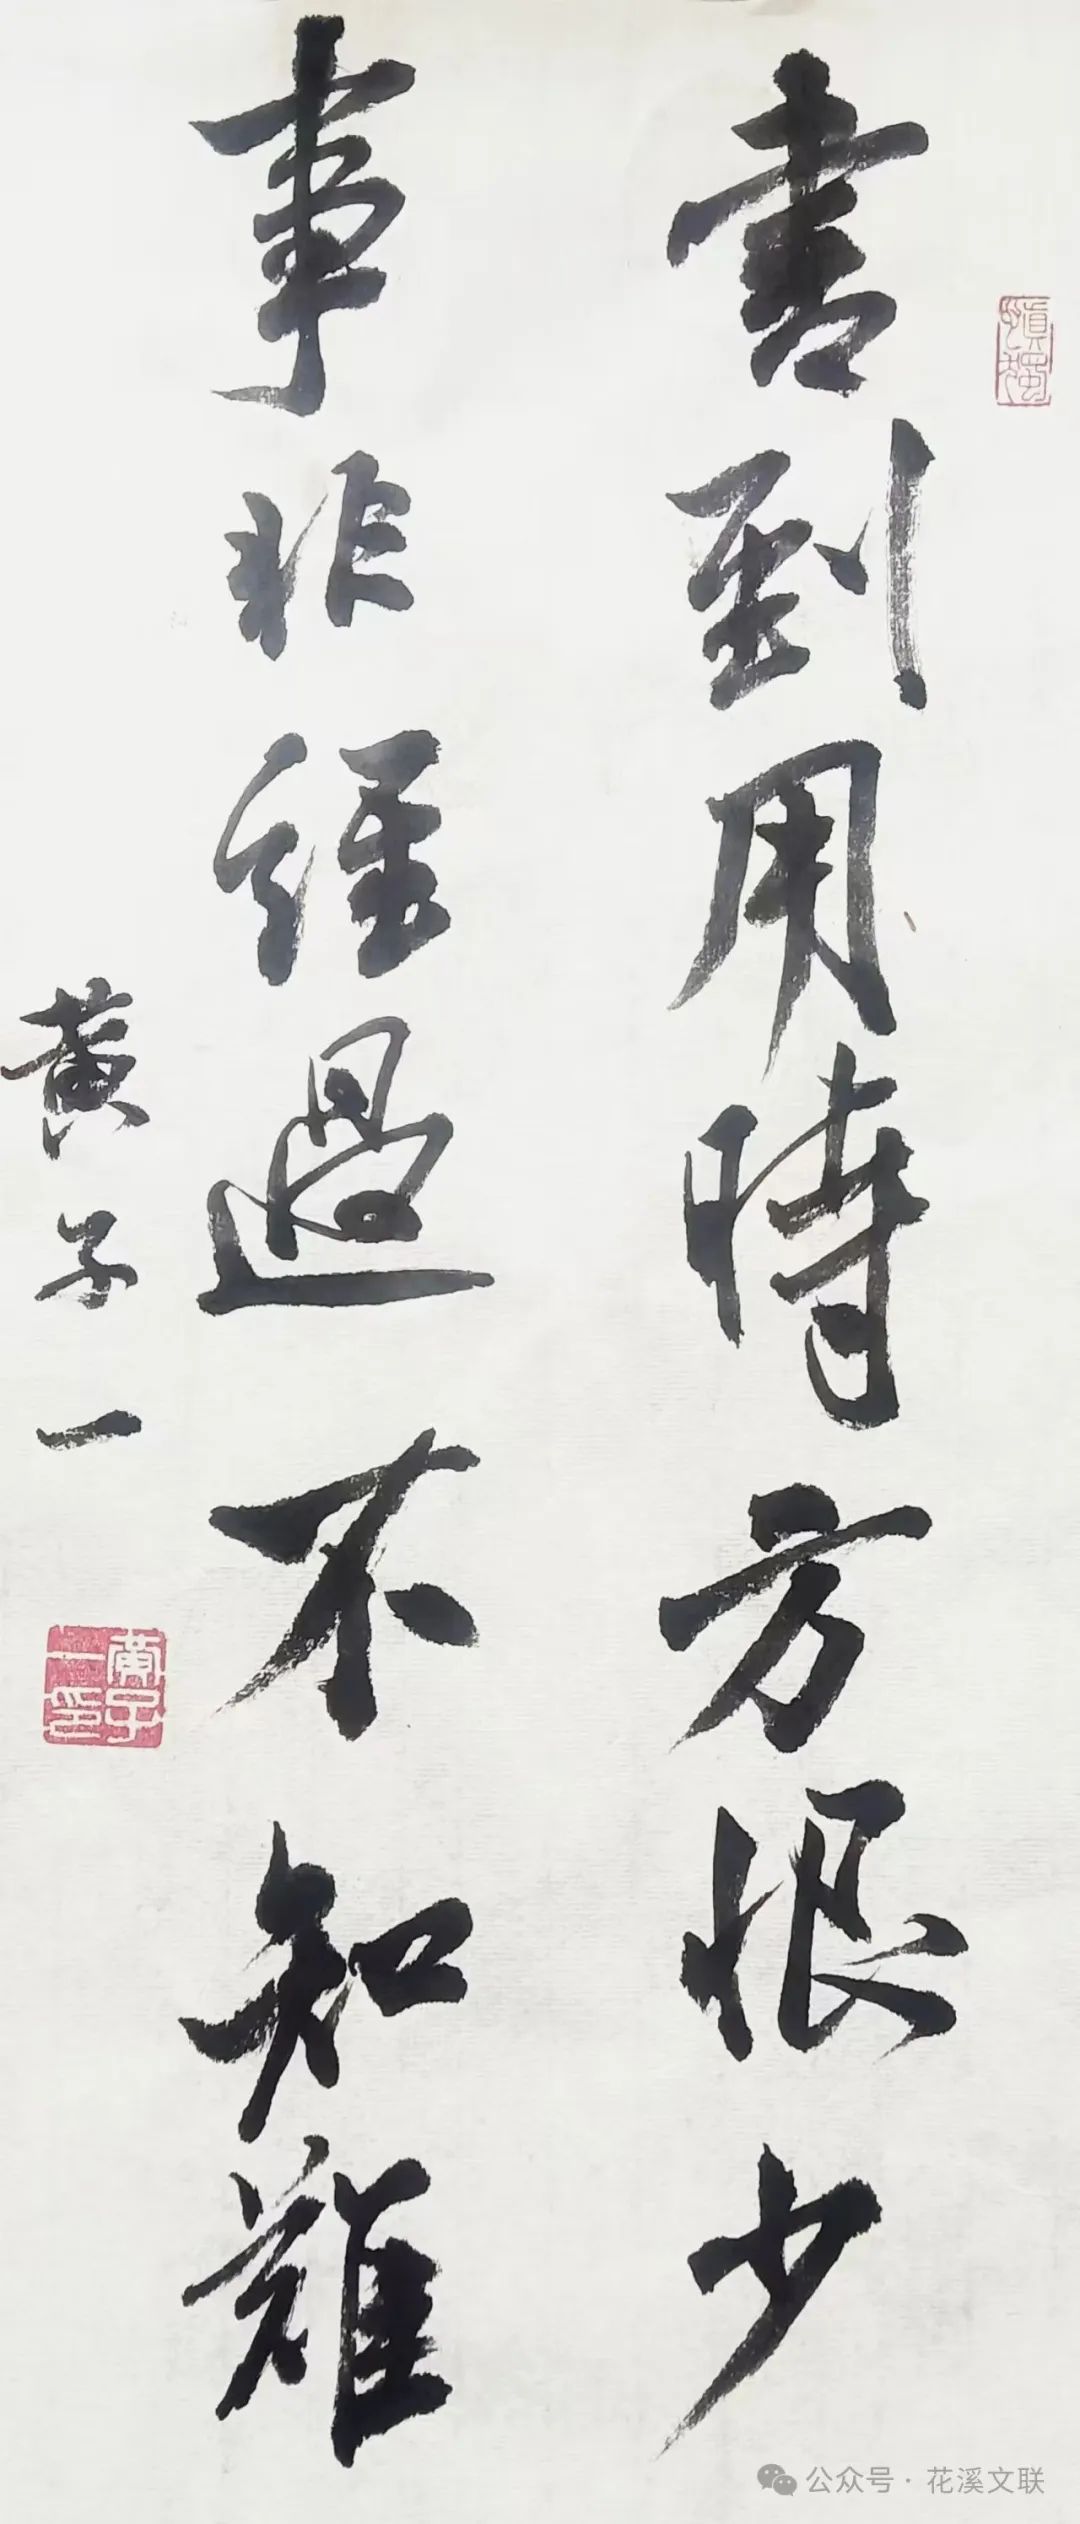 書到用時方恨少
事非經過不知難
黄子一
黄子一印
公众号·花溪文联